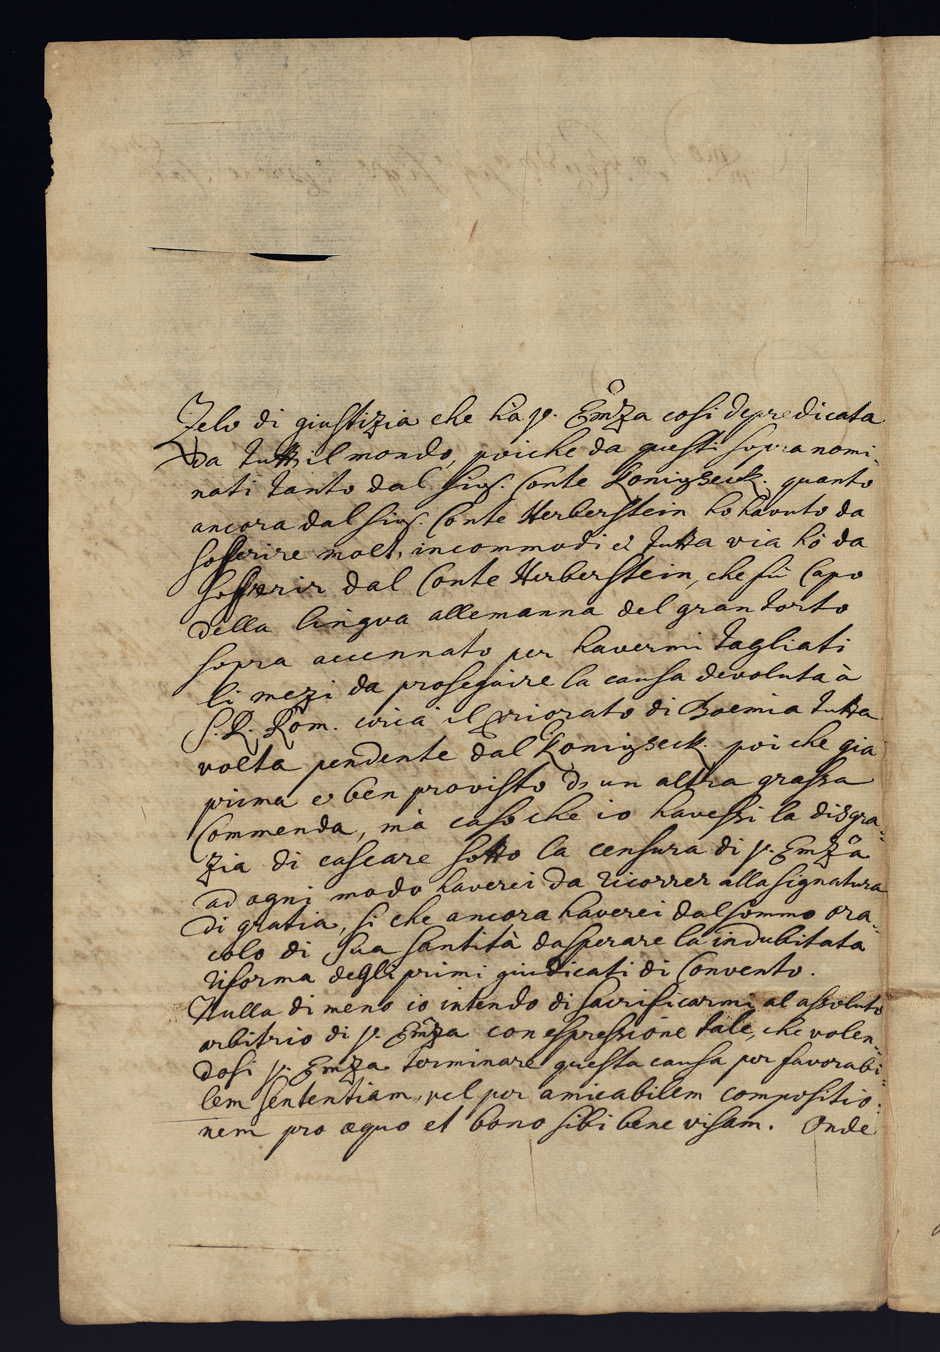 Zelo di giustizia che hà V. Emza cosi depredicata
da tutti il mondo, poiche da questi sopra nomi-
nati tanto dal Sig. Conte Konigseck. quanto
ancora dal Sig. Conte Herberstein ho havuto da
sofferire molti incommodi et tutta via hò da
sofferir dal Conte Herberstein, che fù Capo
della lingva allemanna del gran torto
sopra accennato per havermi tagliati
li mezi da proseguire la causa devoluta à
S. R. Rom. circa il Priorato di Boemia tutta
volta pendente dal Konigseck. poi che gia
prima e ben provisto di un altra grassa
Commenda, mà caso che io havessi la disgra-
zia di cascare sotto la censura di V. Emza
ad ogni modo haverei da ricorrer alla signatura
di gratia, si che ancora haverei dal sommo ora-
colo di Sua Santità da sperare la indubitata
riforma degli primi giudicati di Convento.
Nulla di meno io intendo di sacrificarmi al assoluto
arbitrio di V. Emza con espressione tale, che volen-
dosi V. Emza terminare questa causa per favorabi-
lem sententiam, vel per amicabilem compositio-
nem pro æquo et bono sibi bene visam. Onde